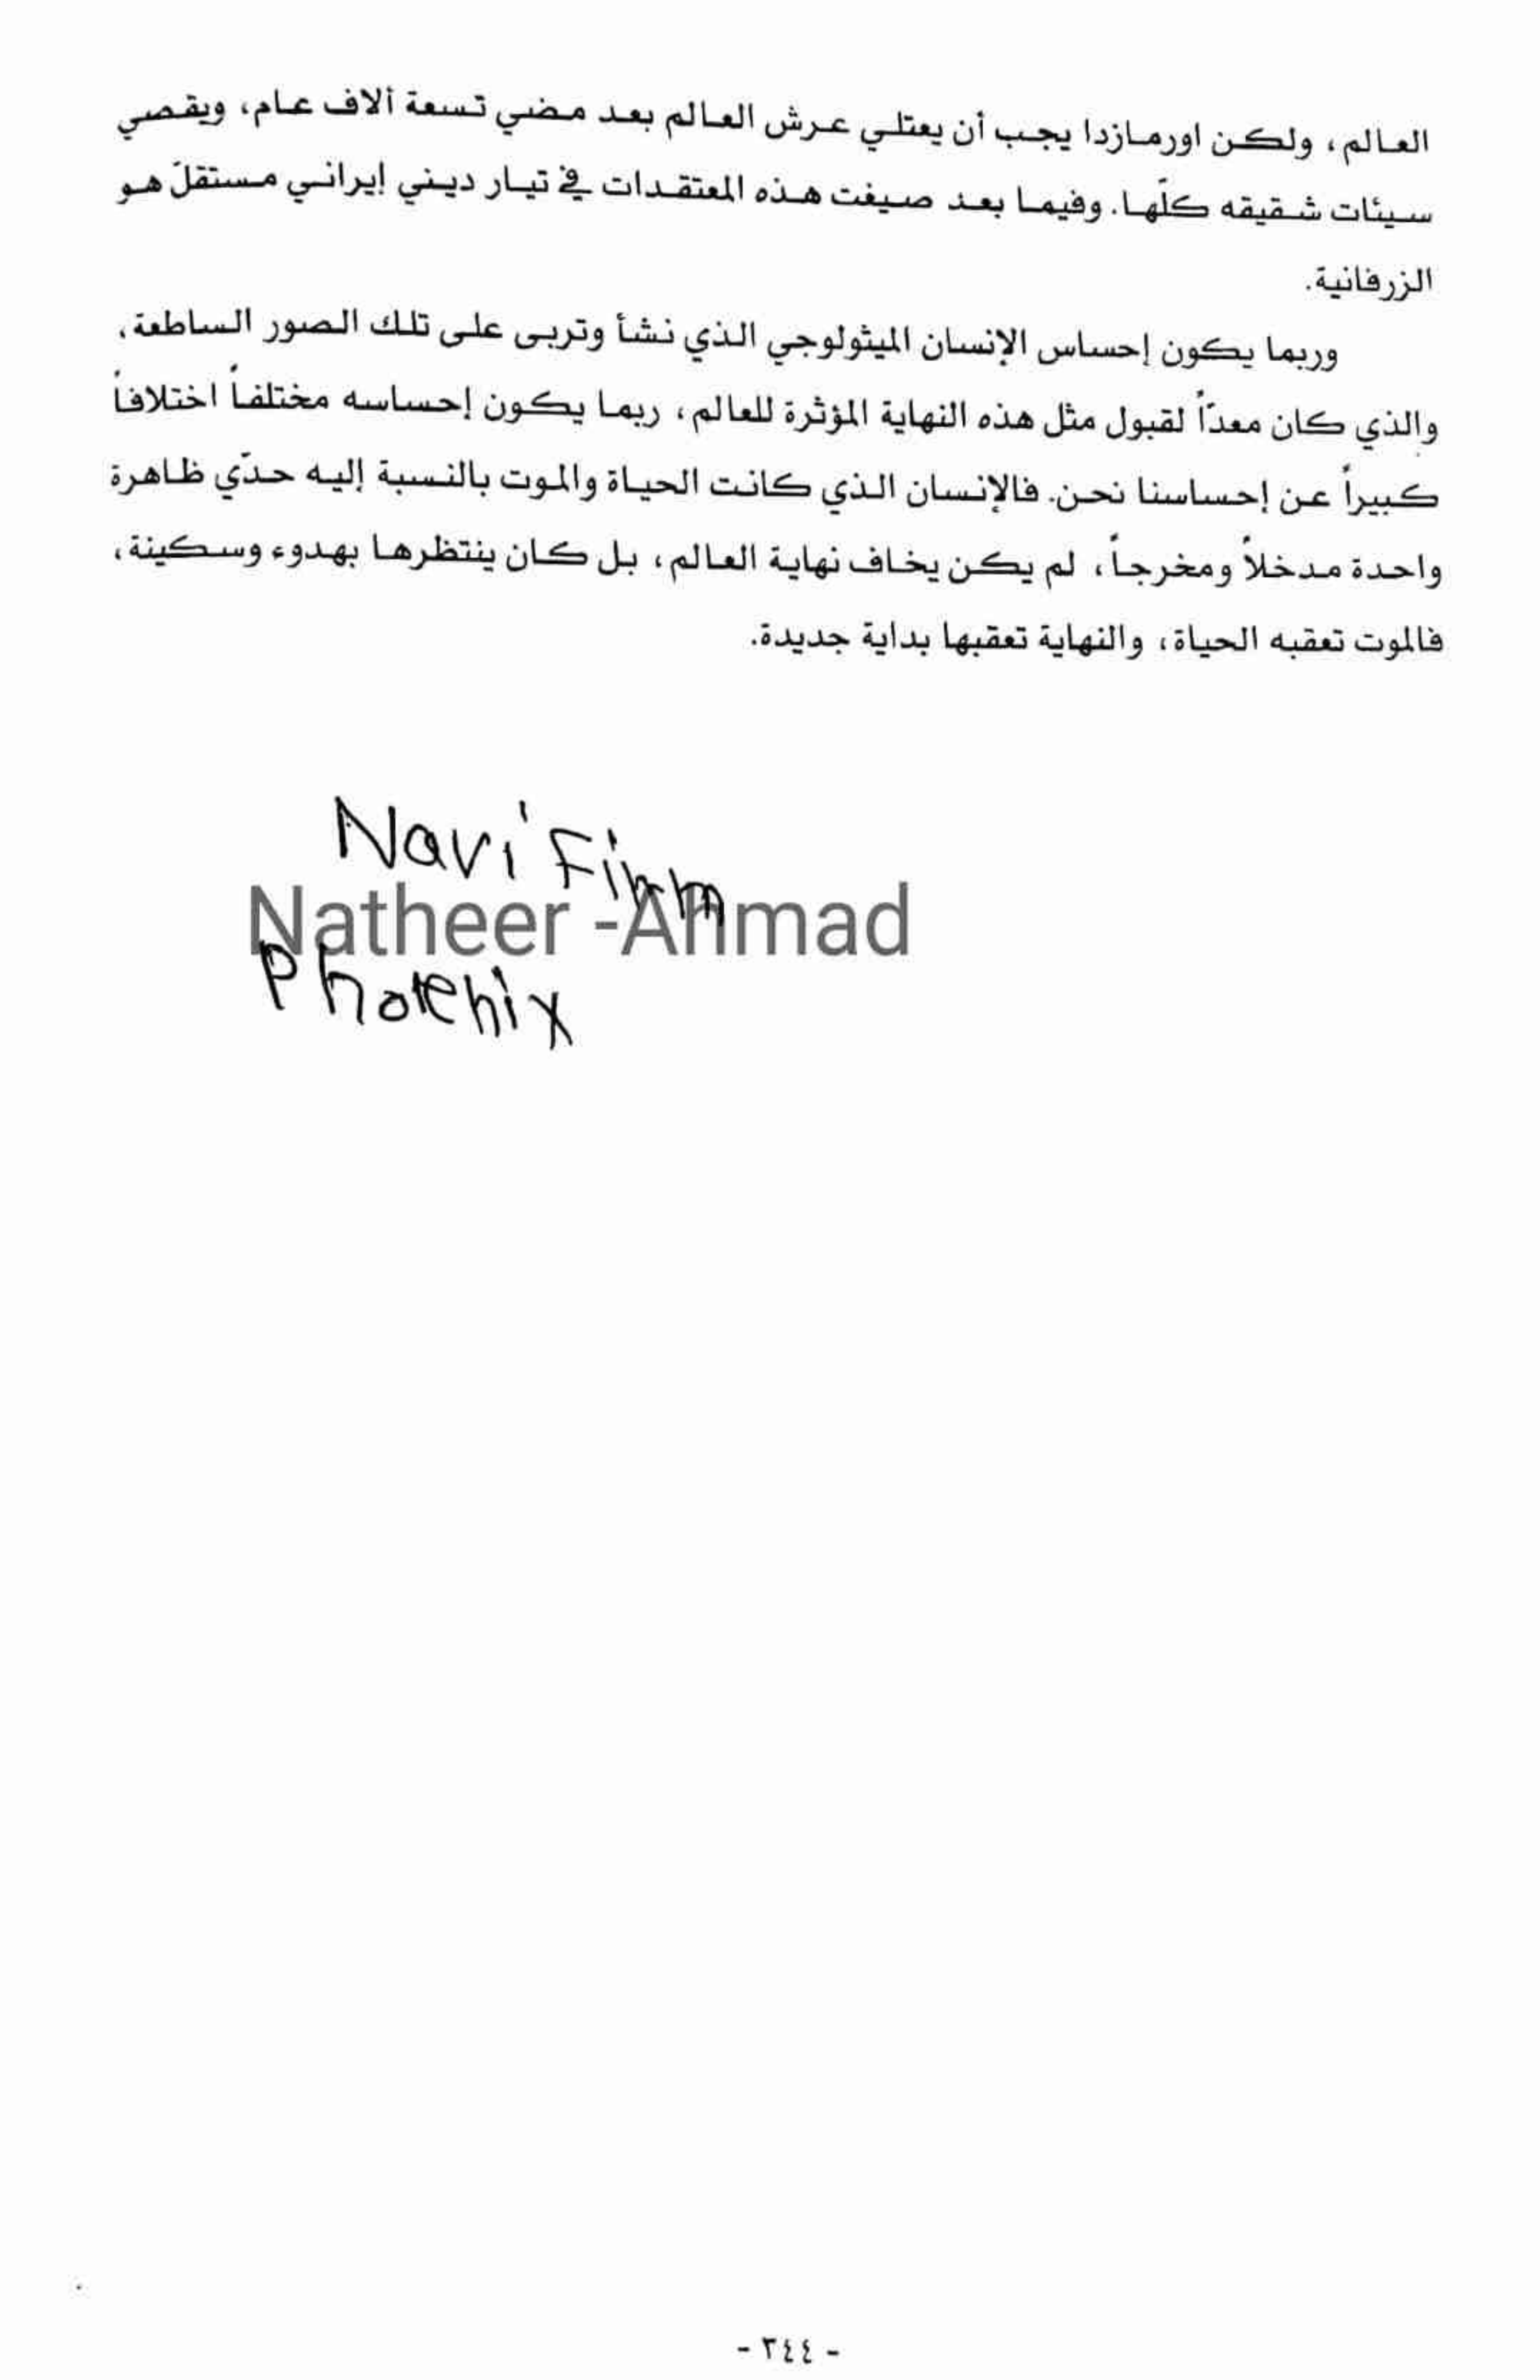 العالم، ولكن اورمازدا يجب أن يعتلي عرش العالم بعد مضي تسعة آلاف عام، ويقصي
سيئات شقيقه كلّها. وفيما بعد صيغت هذه المعتقدات في تيار ديني إيراني مستقلّ هو
الزرفانية.
وربما يكون إحساس الإنسان الميثولوجي الذي نشأ وتربى على تلك الصور الساطعة،
والذي كان معدّاً لقبول مثل هذه النهاية المؤثرة للعالم، ربما يكون إحساسه مختلفاً اختلافاً
كبيراً عن إحساسنا نحن. فالإنسان الذي كانت الحياة والموت بالنسبة إليه حدّي ظاهرة
واحدة مدخلاً ومخرجاً، لم يكن يخاف نهاية العالم، بل كان ينتظرها بهدوء وسكينة،
فالموت تعقبه الحياة، والنهاية تعقبها بداية جديدة.
Navi
Natheer -Ahmad
Phoenix
- ٣٤٤ -